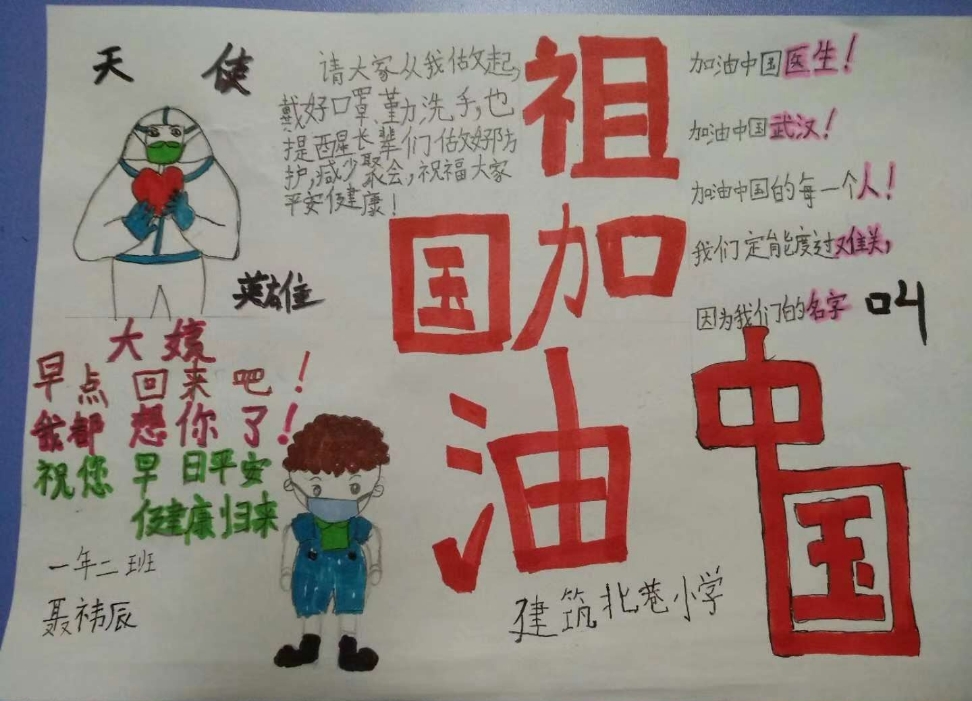 天使
请大家从我做起,
戴好口罩、勤洗手,也
提醒长辈们做好防
护,减少聚会,祝福大家
平安健康!
英雄
祖
国加
油
加油中国医生!
加油中国武汉!
加油中国的每一个人!
我们定能度过难关,
因为我们的名字叫
中
国
大嫜
早点回来吧!
我都想你了!
祝您早日平安
健康归来
一年二班
聂祎辰
建筑北巷小学